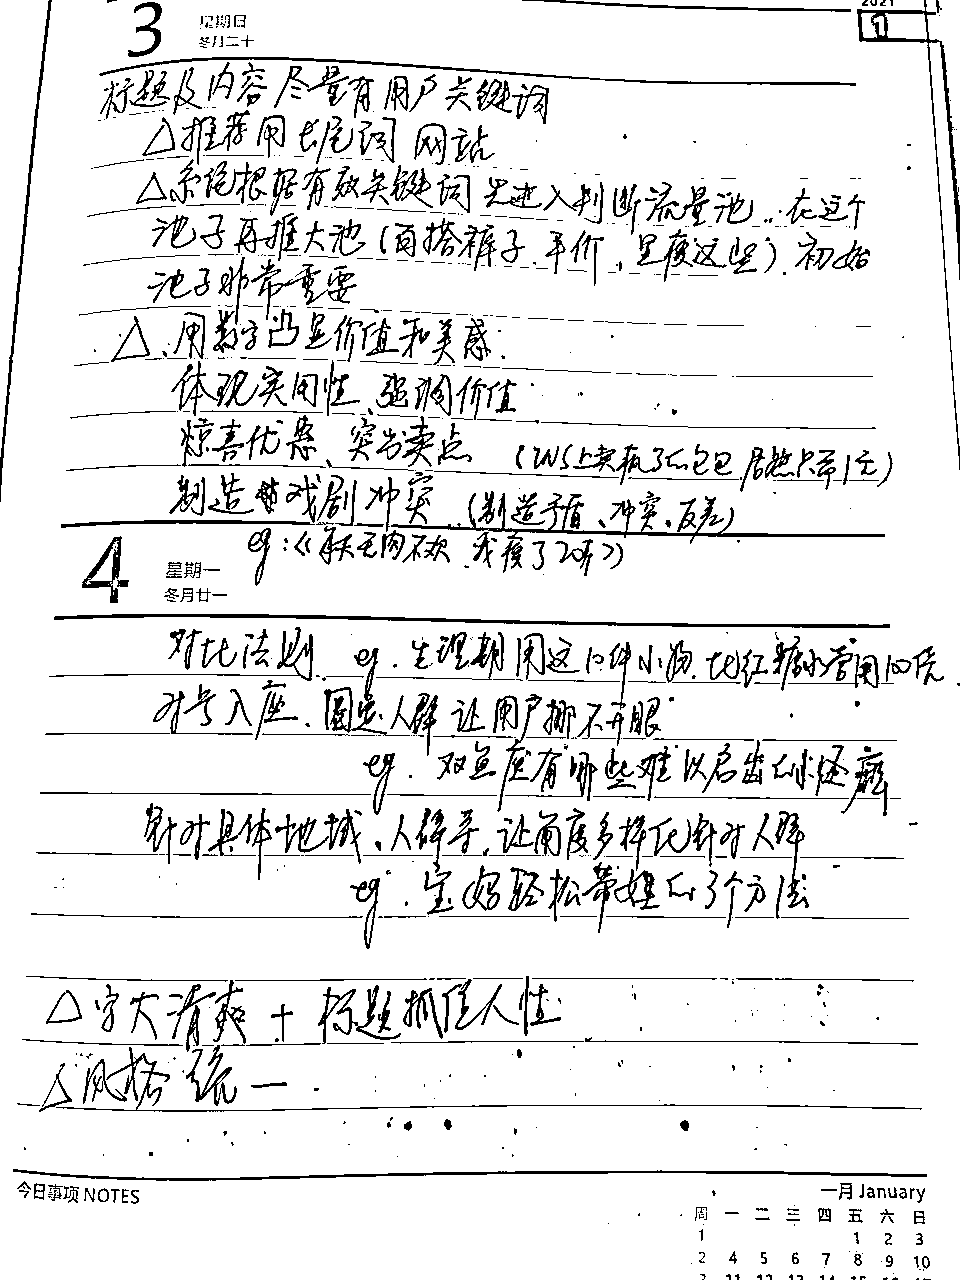 2021
1
3 星期日
冬月二十
标题及内容尽量有用户关键词
△推荐用长尾词 网站
△系统根据有效关键词 先进入判断流量池..在这个
池子再推大池(百搭裤子.平价,显瘦这些).初始
池子非常重要
△、用数字凸显价值和美感.
体现实用性、强调价值
惊喜优惠、突出卖点 (INS上卖疯了的包包居然只要1元)
制造 戏剧冲突 (制造矛盾、冲突、反差)
eg:《 无肉不欢 我瘦了20斤》
4 星期一
冬月廿一
对比法则 eg.生理期用这10件小物.比红糖水管用100倍.
对号入座.圈定人群 让用户挪不开眼
eg.双鱼座有哪些难以启齿的小怪癖
针对具体地域、人群等,让角度多样化针对人群
eg.宝妈轻松带娃的3个方法
△字大清爽+标题抓住人性
△风格统一
今日事项 NOTES
一月 January
周 一 二 三 四 五 六 日
1 1 2 3
2 4 5 6 7 8 9 10